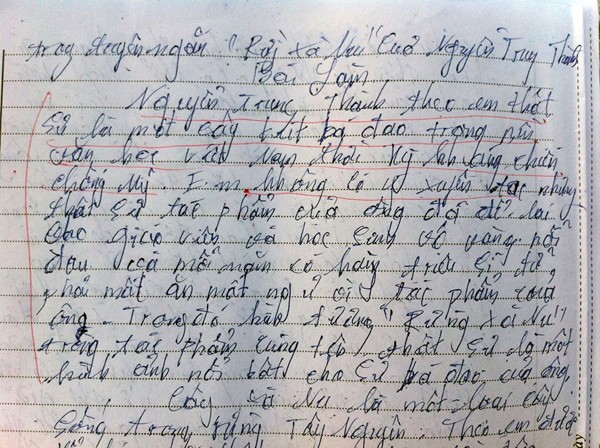 trog truyện ngắn "Rừg xà Nu" Của Nguyễn Trug Thành
Bài Làm
Nguyễn Trung Thành theo em thật
Sự là một cây bút bá đạo trong nền
văn học việt Nam thời kỳ kháng chiến
chống Mỹ. Em không có ý xuyên tạc nhưng
thật sự tác phẩm của ông đã để lại
cho giáo viên và học sinh vô vàng nổi
đau cả mỗi năm có hàng triệu sĩ tử
phải mất ăn mất ngủ với tác phẩm của
ông. Trong đó hình tượng "Rừng xà Nu"
trong tác phẩm cùng tên thật sự là một
hình ảnh nổi bật cho sự bá đạo của ông.
Cây xà Nu là một loại cây
Sống trong rừng Tây Nguyên Theo em được